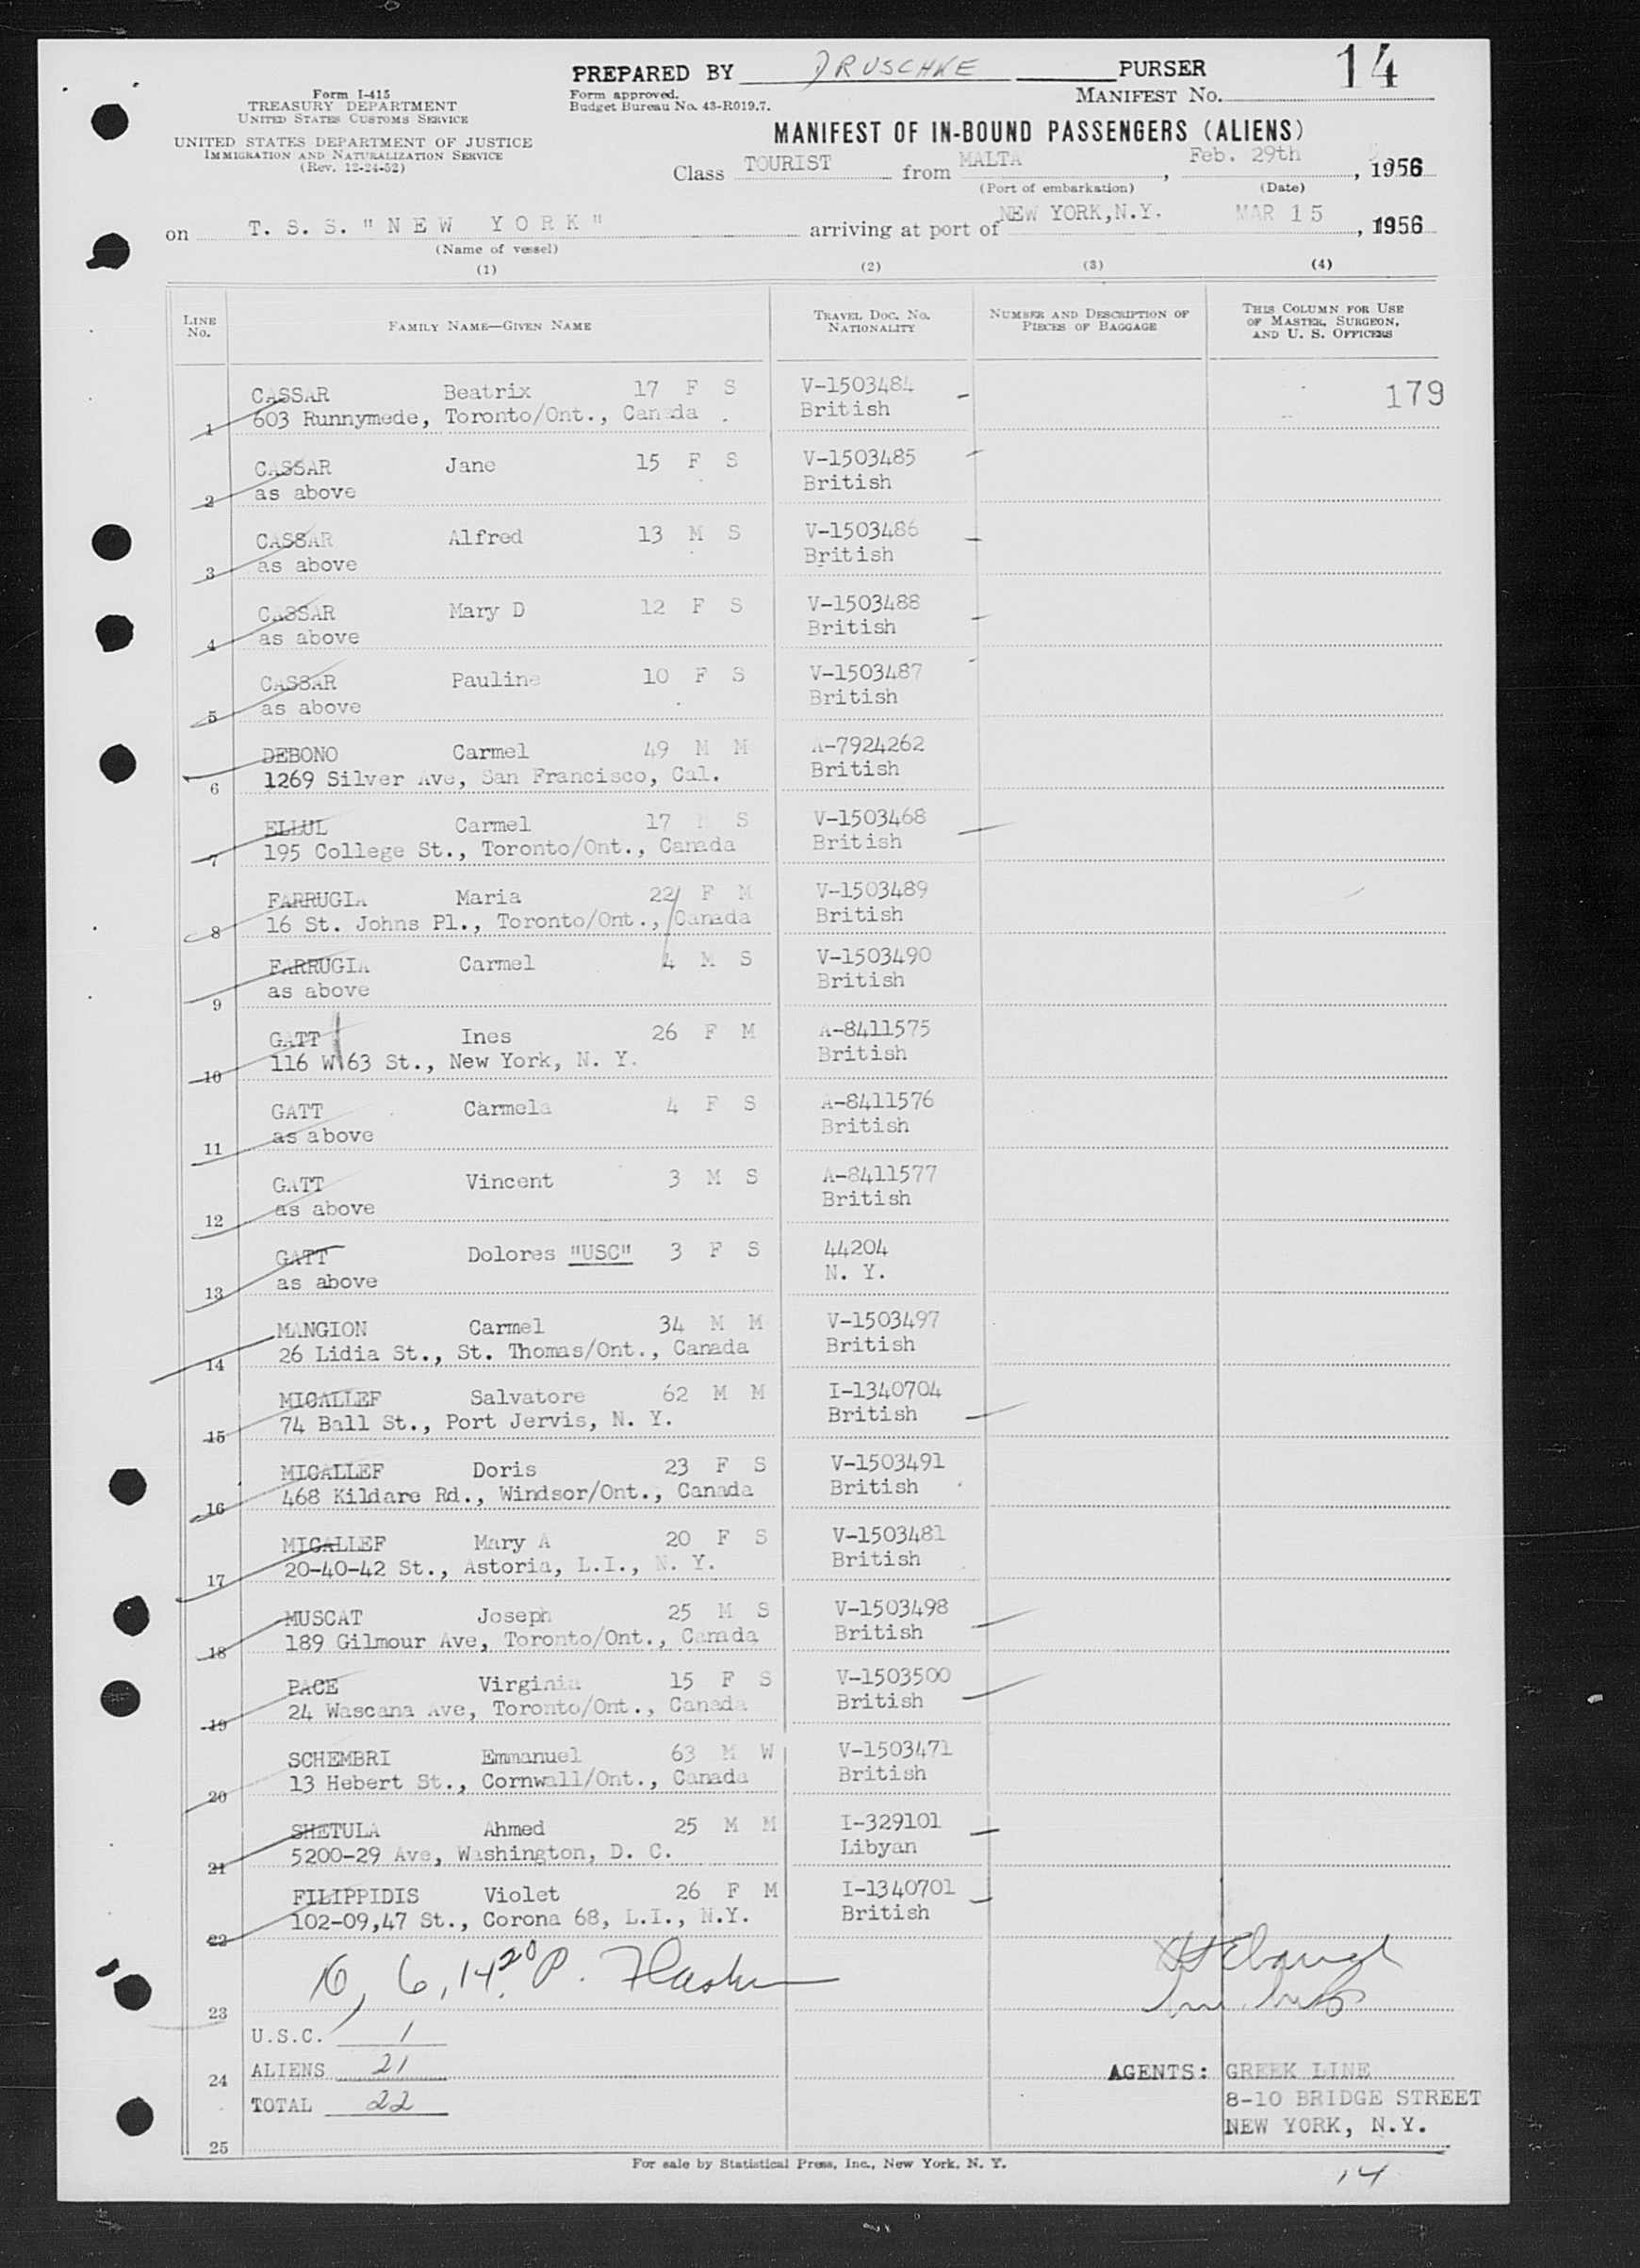 PREPARED BY DRUSCHKE PURSER 14
Form I-415
TREASURY DEPARTMENT
UNITED STATES CUSTOMS SERVICE
UNITED STATES DEPARTMENT OF JUSTICE
IMMIGRATION AND NATURALIZATION SERVICE
(Rev. 12-24-52)
Form approved.
Budget Bureau No. 43-R019.7.
MANIFEST No.
MANIFEST OF IN-BOUND PASSENGERS (ALIENS)
Class TOURIST from MALTA, Feb. 29th, 1956
(Port of embarkation) (Date)
on T. S. S. "NEW YORK" arriving at port of NEW YORK, N.Y. MAR 15, 1956
(Name of vessel)
(1) (2) (3) (4)
LINE No. FAMILY NAME—GIVEN NAME TRAVEL DOC. NO. NATIONALITY NUMBER AND DESCRIPTION OF PIECES OF BAGGAGE THIS COLUMN FOR USE OF MASTER, SURGEON, AND U. S. OFFICERS
CASSAR Beatrix 17 F S V-1503484 179
1 603 Runnymede, Toronto/Ont., Canada British
CASSAR Jane 15 F S V-1503485
2 as above British
CASSAR Alfred 13 M S V-1503486
3 as above British
CASSAR Mary D 12 F S V-1503488
4 as above British
CASSAR Pauline 10 F S V-1503487
5 as above British
DEBONO Carmel 49 M M A-7924262
6 1269 Silver Ave, San Francisco, Cal. British
ELLUL Carmel 17 M S V-1503468
7 195 College St., Toronto/Ont., Canada British
FARRUGIA Maria 22 F M V-1503489
8 16 St. Johns Pl., Toronto/Ont., Canada British
FARRUGIA Carmel 4 M S V-1503490
9 as above British
GATT Ines 26 F M A-8411575
10 116 W 63 St., New York, N. Y. British
GATT Carmela 4 F S A-8411576
11 as above British
GATT Vincent 3 M S A-8411577
12 as above British
GATT Dolores "USC" 3 F S 44204
13 as above N. Y.
MANGION Carmel 34 M M V-1503497
14 26 Lidia St., St. Thomas/Ont., Canada British
MICALLEF Salvatore 62 M M I-1340704
15 74 Ball St., Port Jervis, N. Y. British
MICALLEF Doris 23 F S V-1503491
16 468 Kildare Rd., Windsor/Ont., Canada British
MICALLEF Mary A 20 F S V-1503481
17 20-40-42 St., Astoria, L.I., N. Y. British
MUSCAT Joseph 25 M S V-1503498
18 189 Gilmour Ave, Toronto/Ont., Canada British
PACE Virginia 15 F S V-1503500
19 24 Wascana Ave, Toronto/Ont., Canada British
SCHEMBRI Emmanuel 63 M W V-1503471
20 13 Hebert St., Cornwall/Ont., Canada British
SHETULA Ahmed 25 M M I-329101
21 5200-29 Ave, Washington, D. C. Libyan
FILIPPIDIS Violet 26 F M I-1340701
22 102-09,47 St., Corona 68, L.I., N.Y. British
23
U.S.C. 1
24 ALIENS 21 AGENTS: GREEK LINE
TOTAL 22 8-10 BRIDGE STREET
NEW YORK, N.Y.
25
For sale by Statistical Press, Inc., New York, N. Y.
14